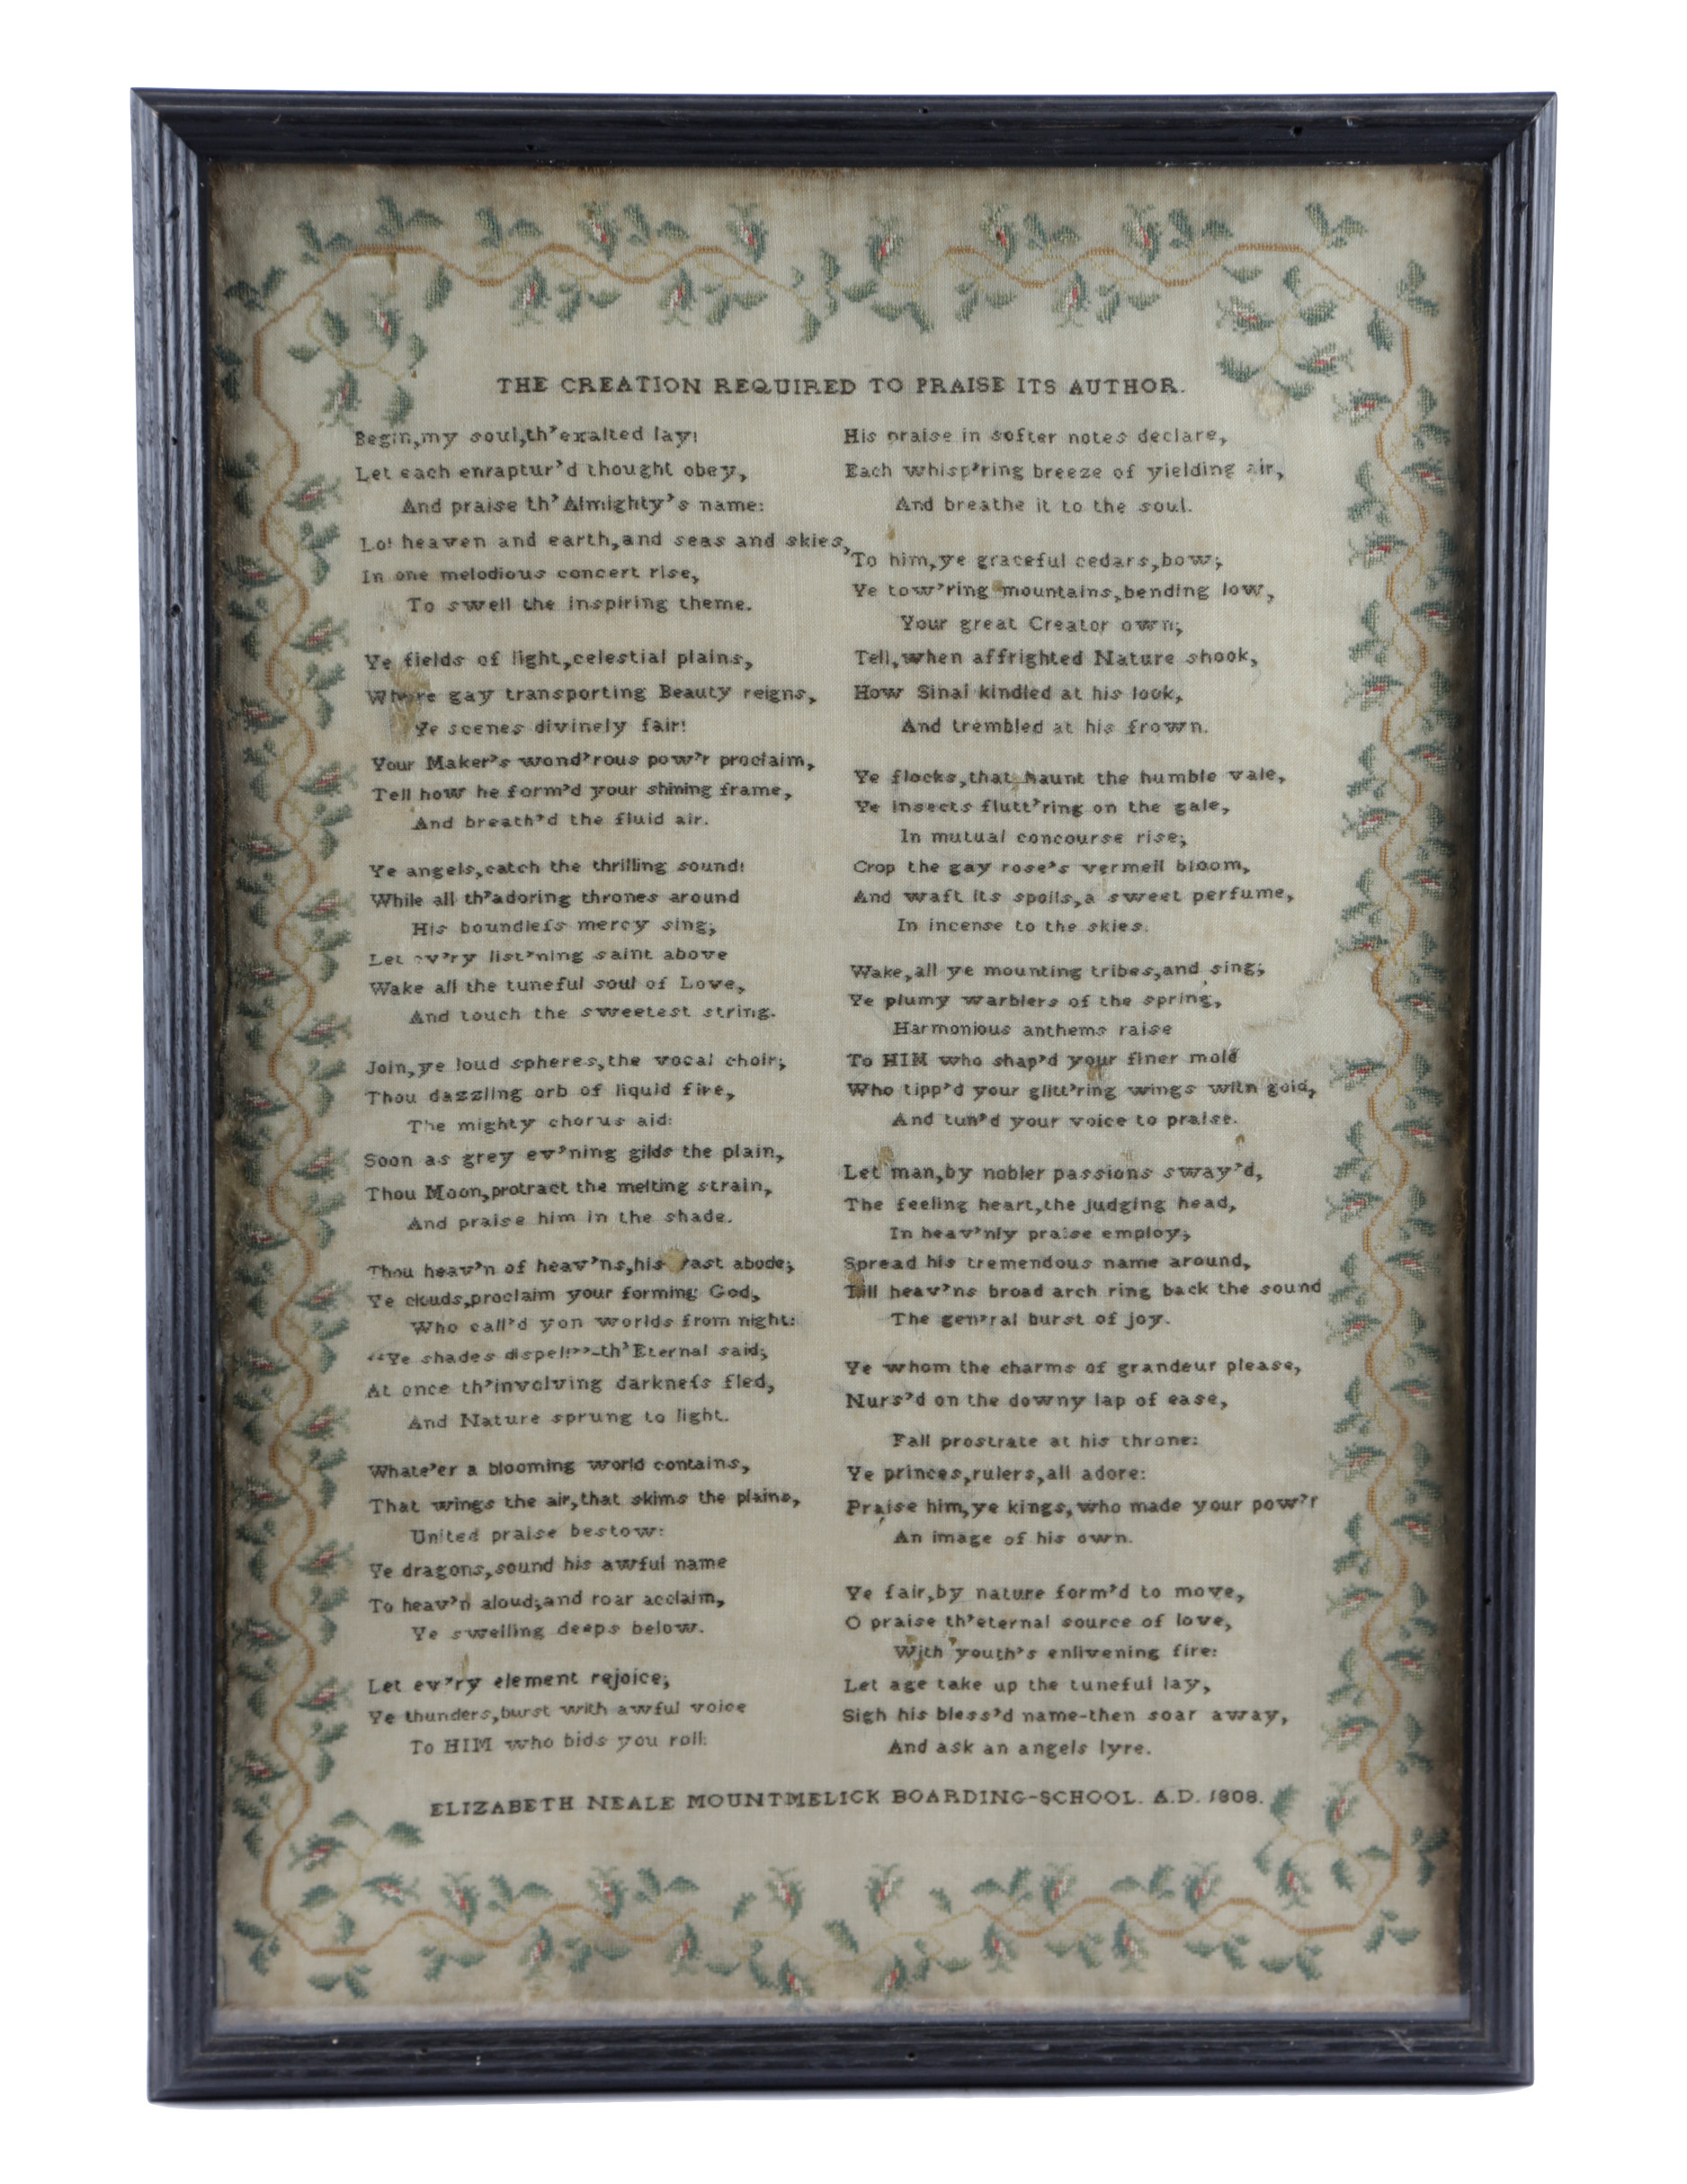 THE CREATION REQUIRED TO PRAISE ITS AUTHOR.
Begin,my soul,th'exalted lay!
Let each enraptur'd thought obey,
And praise th'Almighty's name:
Lo! heaven and earth,and seas and skies,
In one melodious concert rise,
To swell the inspiring theme.
Ye fields of light,celestial plains,
Where gay transporting Beauty reigns,
Ye scenes divinely fair!
Your Maker's wond'rous pow'r proclaim,
Tell how he form'd your shining frame,
And breath'd the fluid air.
Ye angels,catch the thrilling sound!
While all th'adoring thrones around
His boundleſs mercy sing;
Let ev'ry list'ning saint above
Wake all the tuneful soul of Love,
And touch the sweetest string.
Join,ye loud spheres,the vocal choir;
Thou dazzling orb of liquid fire,
The mighty chorus aid:
Soon as grey ev'ning gilds the plain,
Thou Moon,protract the melting strain,
And praise him in the shade.
Thou heav'n of heav'ns,his vast abode;
Ye clouds,proclaim your forming God,
Who call'd yon worlds from night:
“Ye shades dispel!”-th'Eternal said;
At once th'involving darkneſs fled,
And Nature sprung to light.
Whate'er a blooming world contains,
That wings the air,that skims the plains,
United praise bestow:
Ye dragons,sound his awful name
To heav'n aloud;and roar acclaim,
Ye swelling deeps below.
Let ev'ry element rejoice;
Ye thunders,burst with awful voice
To HIM who bids you roll:
His praise in softer notes declare,
Each whisp'ring breeze of yielding air,
And breathe it to the soul.
To him,ye graceful cedars,bow;
Ye tow'ring mountains,bending low,
Your great Creator own;
Tell,when affrighted Nature shook,
How Sinai kindled at his look,
And trembled at his frown.
Ye flocks,that haunt the humble vale,
Ye insects flutt'ring on the gale,
In mutual concourse rise;
Crop the gay rose's vermeil bloom,
And waft its spoils,a sweet perfume,
In incense to the skies.
Wake,all ye mounting tribes,and sing;
Ye plumy warblers of the spring,
Harmonious anthems raise
To HIM who shap'd your finer mold
Who tipp'd your glitt'ring wings with gold,
And tun'd your voice to praise.
Let man,by nobler passions sway'd,
The feeling heart,the judging head,
In heav'nly praise employ;
Spread his tremendous name around,
Till heav'ns broad arch ring back the sound
The gen'ral burst of joy.
Ye whom the charms of grandeur please,
Nurs'd on the downy lap of ease,
Fall prostrate at his throne:
Ye princes,rulers,all adore:
Praise him,ye kings,who made your pow'r
An image of his own.
Ye fair,by nature form'd to move,
O praise th'eternal source of love,
With youth's enlivening fire:
Let age take up the tuneful lay,
Sigh his bless'd name-then soar away,
And ask an angels lyre.
ELIZABETH NEALE MOUNTMELICK BOARDING-SCHOOL. A.D. 1808.